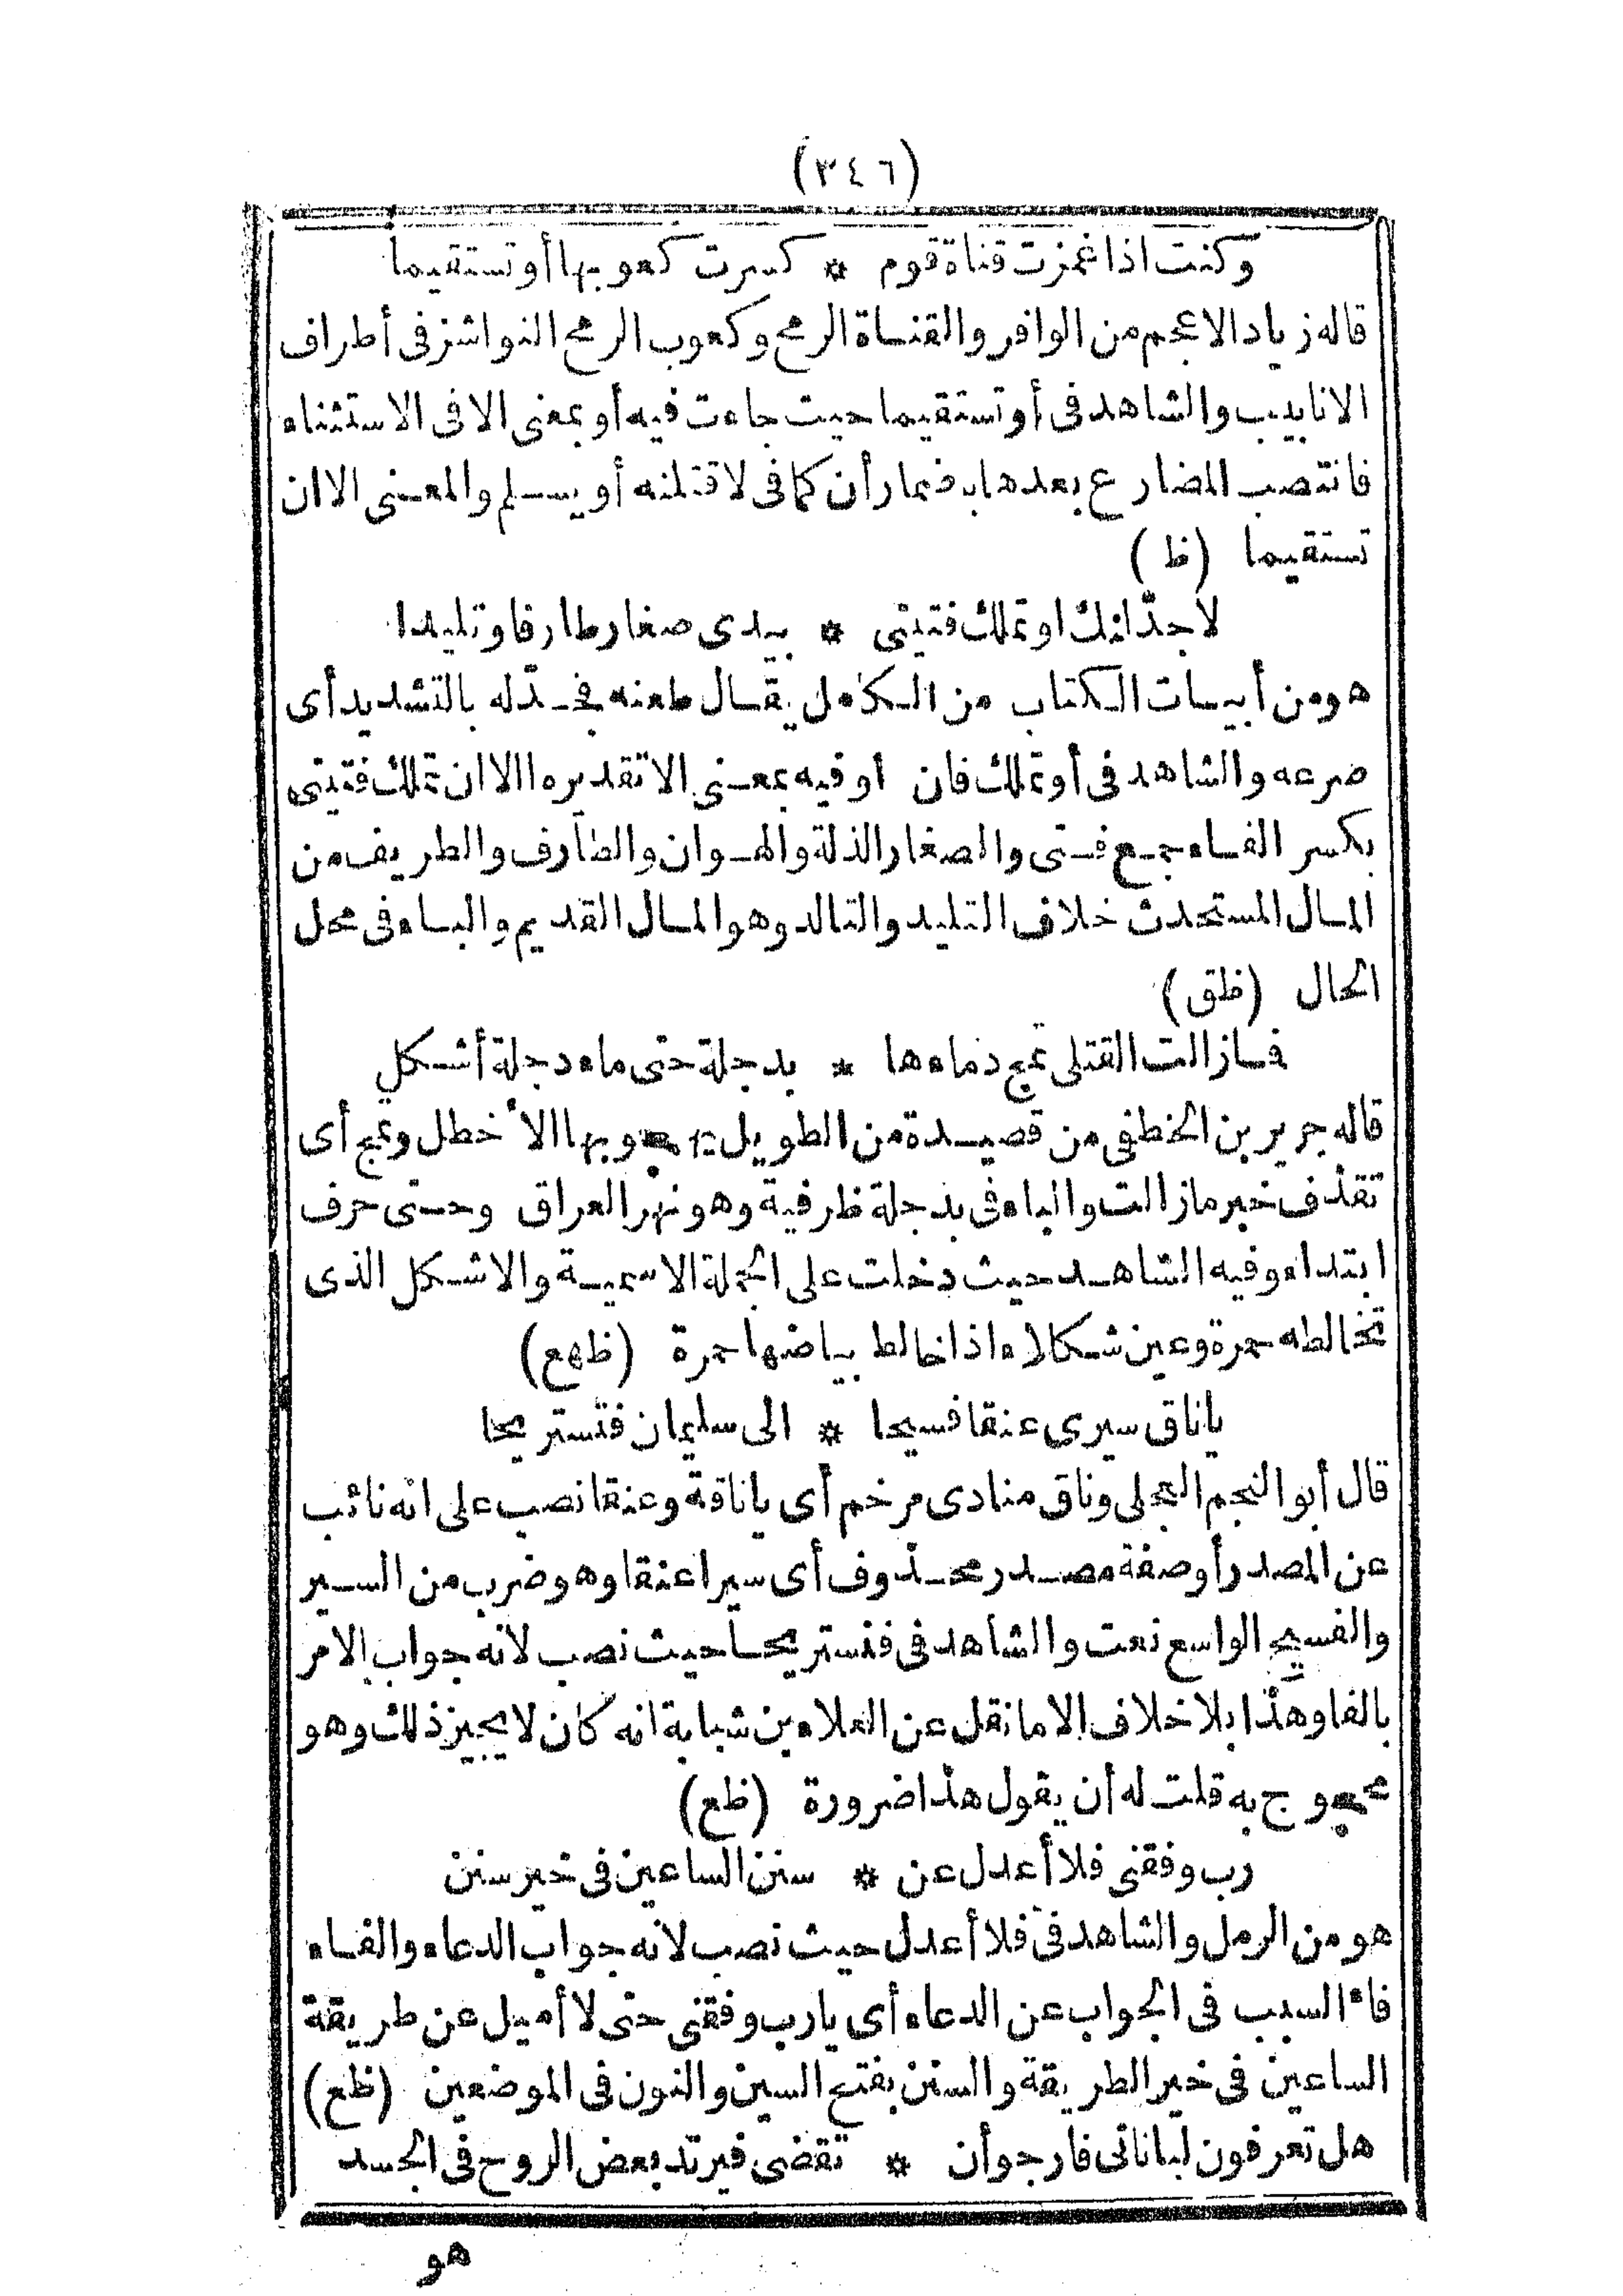 (٣٤٦)
وكنت اذا غمزت قناة قوم * كسرت كعوبها أو تستقيما
قاله زياد الاعجم من الوافر والقناة الرمح وكعوب الرمح النواشز فى أطراف
الانابيب والشاهد فى أو تستقيما حيث جاءت فيه أو بمعنى الا فى الاستثناء
فانتصب المضارع بعدها باضمار أن كما فى لاقتلنه أو يسلم والمعنى الا ان
تستقيما (ظ)
لاجدّلنك او تملك فتيتى * بيدى صغار طارفا وتليدا
هو من أبيات الكتاب من الكامل يقال طعنه فجدّله بالتشديد أى
صرعه والشاهد فى أو تملك فان او فيه بمعنى الا تقديره الا ان تملك فتيتى
بكسر الفاء جمع فتى والصغار الذلة والهوان والطارف والطريف من
المال المستحدث خلاف التليد والتالد وهو المال القديم والباء فى محل
الحال (ظق)
فمازالت القتلى تمج دماءها * بدجلة حتى ماء دجلة أشكل
قاله جرير بن الخطفى من قصيدة من الطويل يهجو بها الأخطل وتمج أى
تقذف خبر مازالت والباء فى بدجلة ظرفية وهو نهر العراق وحتى حرف
ابتداء وفيه الشاهد حيث دخلت على الجملة الاسمية والاشكل الذى
تخالطه حمرة وعين شكلاء اذا خالط بياضها حمرة (ظهع)
يا ناق سيرى عنقا فسيحا * الى سليمان فتستريحا
قال أبو النجم العجلى وناق منادى مرخم أى يا ناقة وعنقا نصب على انه نائب
عن المصدر أو صفة مصدر محذوف أى سيرا عنقا وهو ضرب من السير
والفسيح الواسع نعت والشاهد فى فنستريحا حيث نصب لانه جواب الامر
بالفا وهذا بلا خلاف الا ما نقل عن العلاء بن شبابة انه كان لا يجيز ذلك وهو
محجوج به قلت له أن يقول هذا ضرورة (ظع)
رب وفقنى فلا أعدل عن * سنن الساعين فى خير سنن
هو من الرمل والشاهد فى فلا أعدل حيث نصب لانه جواب الدعاء والفاء
فاء السبب فى الجواب عن الدعاء أى يا رب وفقنى حتى لا أميل عن طريقة
الساعين فى خير الطريقة والسنن بفتح السين والنون فى الموضعين (ظع)
هل تعرفون لباناتى فارجو أن * تقضى فيرتد بعض الروح فى الجسد
هو